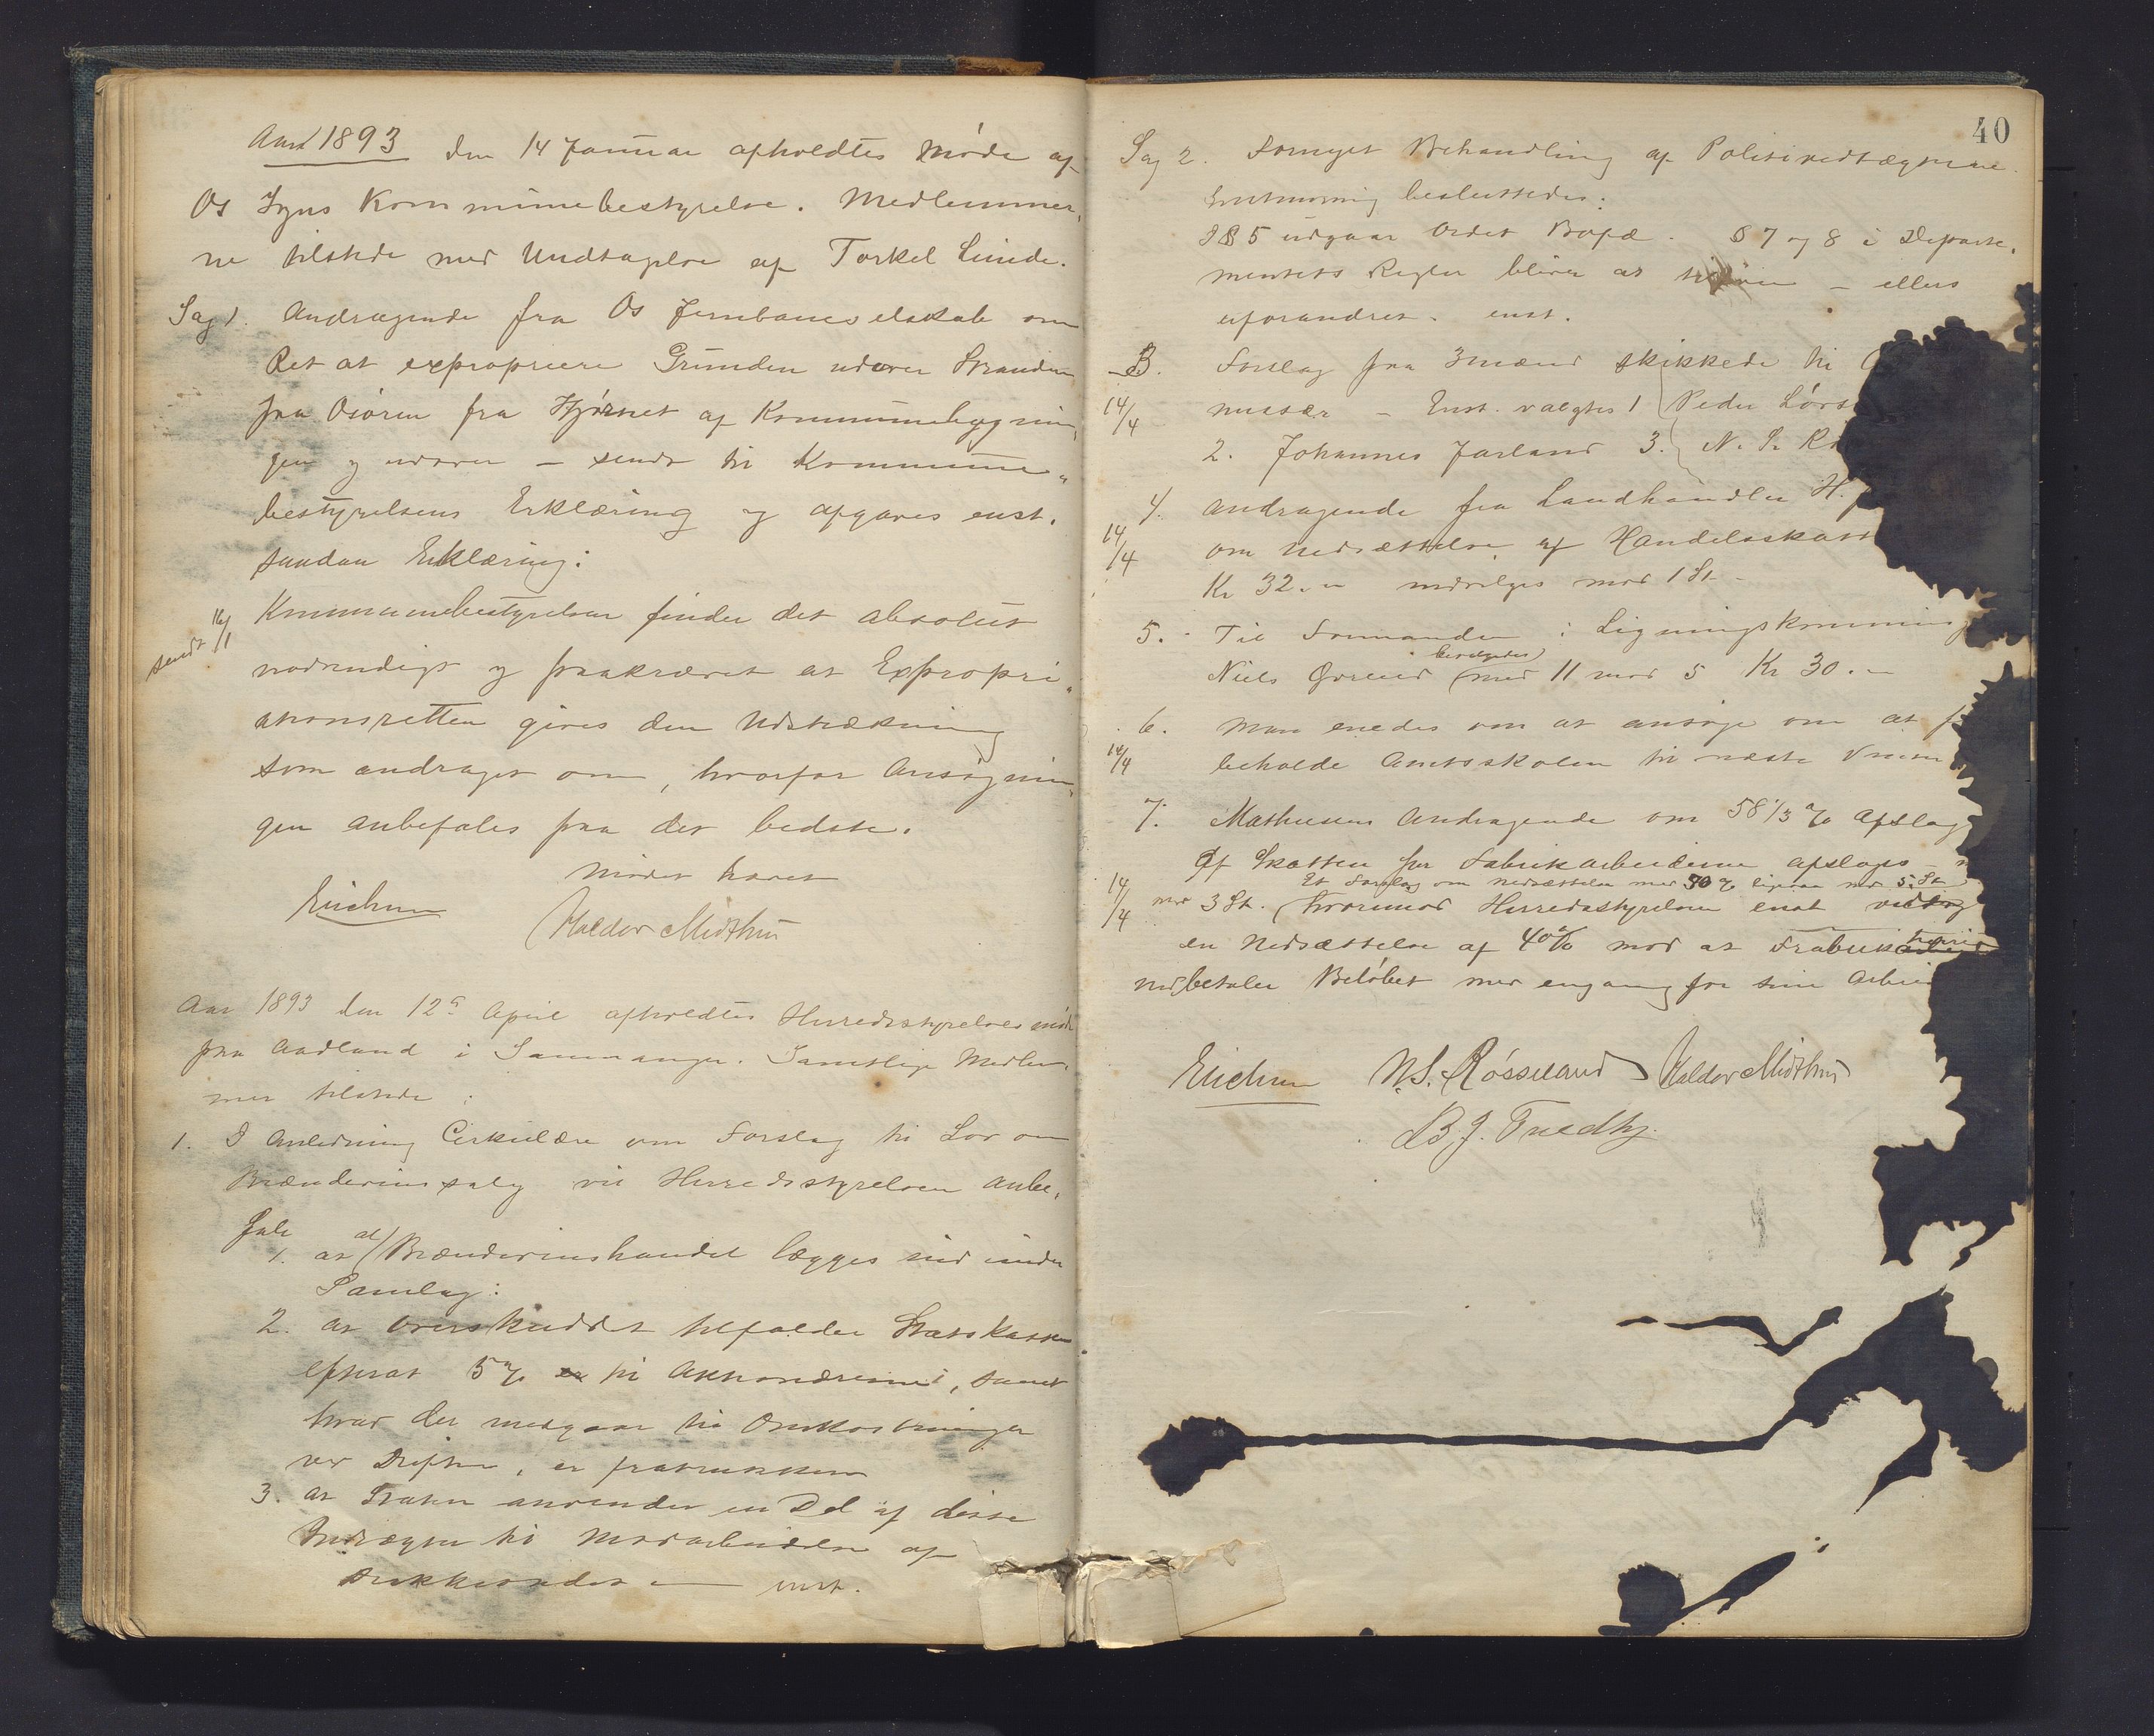 Aaret 1893 den 14 Januar afholdtes Møde af
Os Sogns Kommunebestyrelse. Medlemmer,
ne tilstede med Undtagelse af Torkel Lunde.
Sag 1. Andragende fra Os Jernbaneselskab om
Ret at expropriere Grunden udover Stranden
fra Osøren fra Hjørnet af Kommunebygnin,
gen og udover – sendt til Kommune„
bestyrelsens Erklæring og afgaves enst.
saadan Erklæring:
sendt 16/1
Kommunebestyrelsen finder det absolut
nødvendigt og paakrævet at Expropri„
ationsretten gives den Udstrækning
som andraget om, hvorfor Ansøgnin„
gen anbefales paa det bedste.
Mødet hævet
Erichsen Haldor Midthun
Aar 1893 den 12te April afholdtes Herredsstyrelsesmøde
paa Aadland i Sammanger. Samtlige Medlem,
mer tilstede:
1. I Anledning Cirkulære om Forslag til Lov om
Brændevinssalg vil Herredsstyrelsen anbe,
fale
1. at al Brændevinshandel lægges ind under
Samlag:
2. at Overskuddet tilfalder Statskassen
efterat 5 % er til Aktionærerne, samt
hvad der medgaar til Omkostninger
ved Driften, er fratrukken
3. at Staten anvender en Del af disse
Indtægter til Modarbeidelse af
Drikkeondet – enst.
40
Sag 2. Fornyet Behandling af Politivedtægterne.
Enstemmig besluttedes:
I § 5 udgaar Ordet Bopæl. § 7 og 8 i Departe,
mentets Regler bliver at – ellers
uforandret. enst.
3. Forslag paa 3 mænd skikkede til
14/4
– Enst. valgtes 1 Peder Lørs
2. Johannes Jarland 3. N. S. Rø
4. Andragende fra Landhandler H.
14/4
om Nedsættelse af Handelsskatt
Kr 32.„ indvilges mod 1 St.
5. Til Formanden i Ligningskommis
bevilgedes
Niels Øvred med 11 mod 5 Kr 30.–
6. Man enedes om at ansøge om at f
14/4
beholde Amtsskolen til næste Vinter
7. Mathiesens Andragende om 58 1/3 % Afslag
af Skatten for Fabrikarbeiderne afsloges –
14/4
Et Forslag om Nedsættelse med 50 % ligesaa mod 5 St.
mod 3 St. hvorimod Herredsstyrelsen enst vedtog
en Nedsættelse af 40 % mod at Fabrik
indbetaler Beløbet med engang for sine Arbei
Erichsen N.S. Røsseland Haldor Midthun
B. J. Tvedt